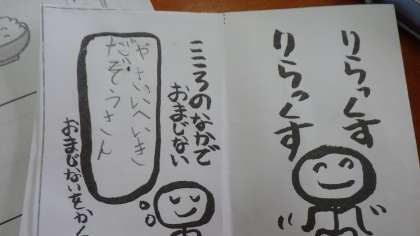 りらっくす
りらっくす
こころのなかで
おまじない
やさいへいき
だぞうさん
おまじないをかく